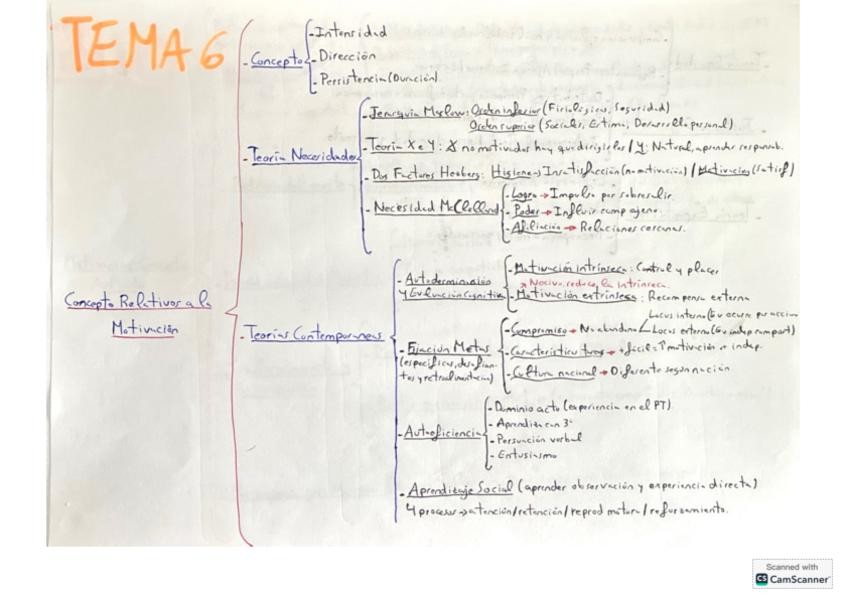 TEMA 6
Concepto Relativos a la
Motivación
- Concepto
- Intensidad
- Dirección
- Persistencia (Duración)
- Teoría Necesidades
- Jerarquía Maslow: Orden inferior (Fisiológicas, Seguridad)
Orden superior (Sociales, Estima, Desarrollo personal)
- Teoría X e Y: X no motivados hay que dirigirles / Y: Natural, aprender responsab.
- Dos Factores Hezberg: Higiene → Insatisfacción (no motivación) / Motivación (Satisf)
- Necesidad McClelland
- Logro → Impulso por sobresalir.
- Poder → Influir comp ajeno.
- Afiliación → Relaciones cercanas.
- Teorías Contemporaneas
- Autodeterminación
y Evaluación Cognitiva
- Motivación intrínseca: Control y placer
→ Nociva, reduce la intrínseca.
- Motivación extrínseca: Recompensa externa
- Fijación Metas
(específicas, desafian-
tes y retroalimentación)
- Compromiso → No abandono
Locus interno (Ev ocurre por accion
Locus externo (Ev indep comport)
- Característica tarea → +fácil = ↑ motivación + indep.
- Cultura nacional → Diferente según nación
- Autoeficiencia
- Dominio acto (experiencia en el PT)
- Aprendiza con 3º
- Persuación verbal
- Entusiasmo
- Aprendizaje Social (aprender observación y experiencia directa)
4 procesos → atención/retención/reprod motora/reforzamiento.
Scanned with
CS CamScanner